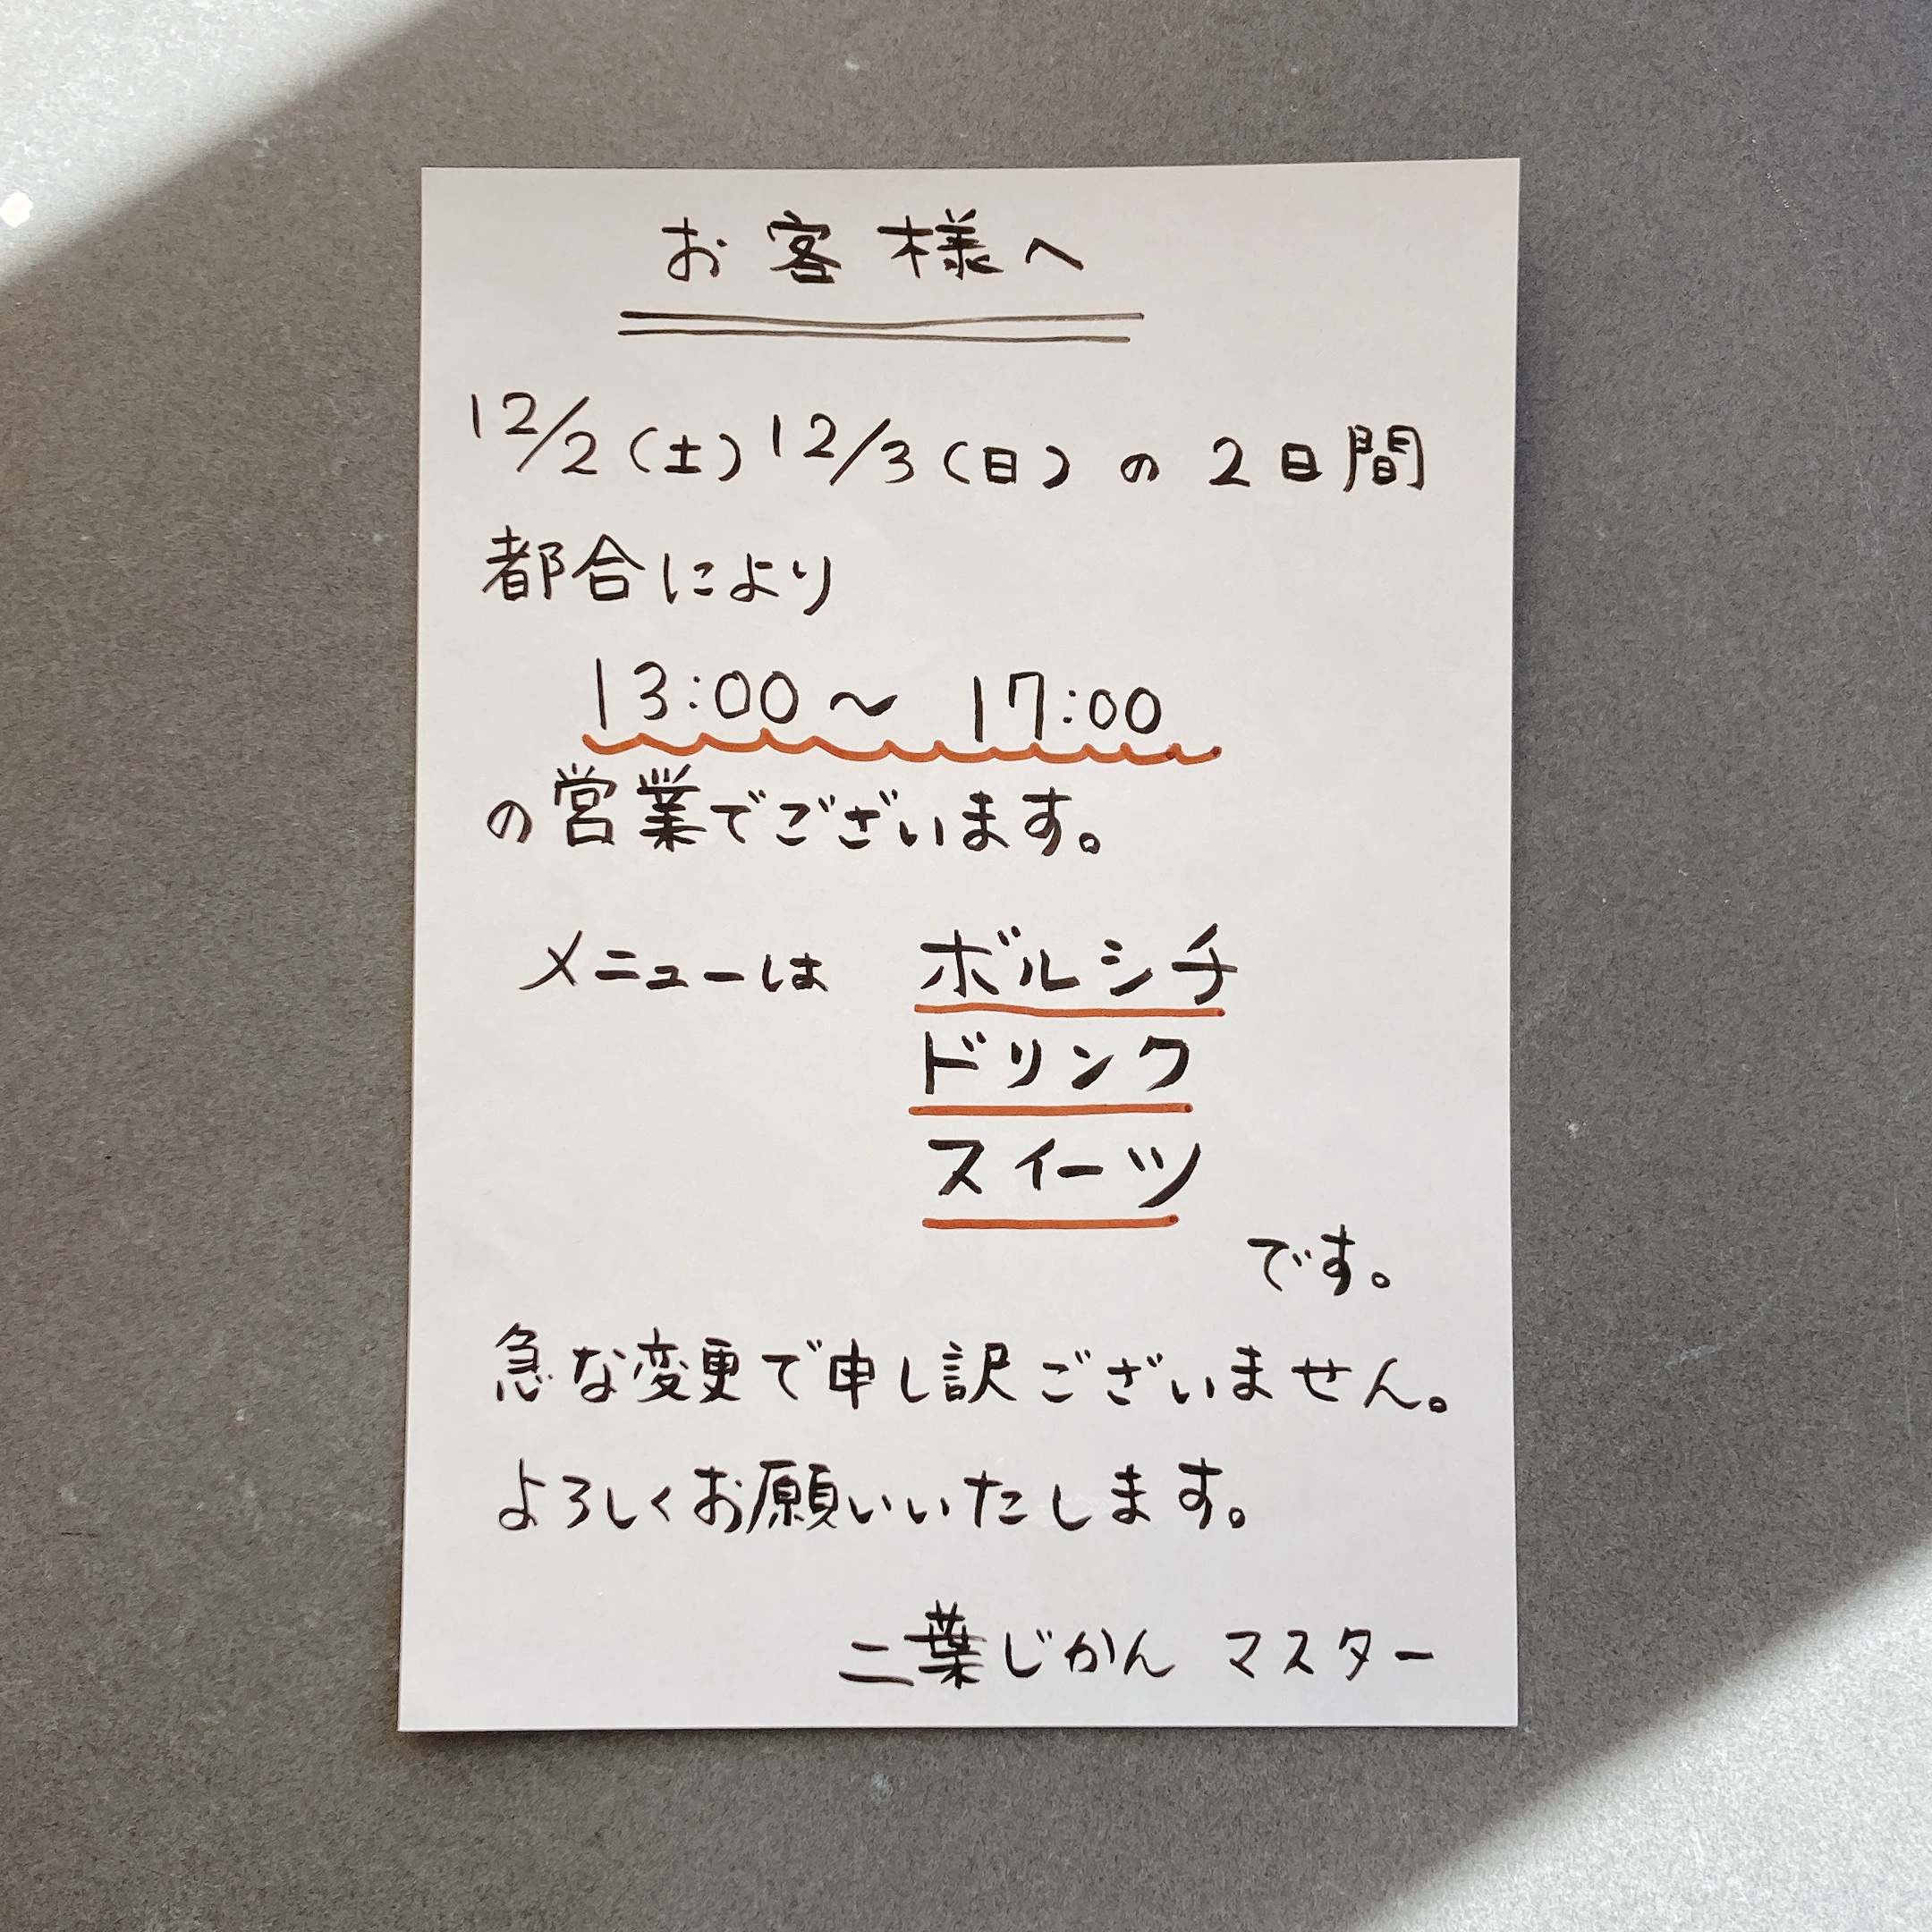 お客様へ
12/2(土)12/3(日)の2日間
都合により
13:00〜 17:00
の営業でございます。
メニューは ボルシチ
ドリンク
スイーツ
です。
急な変更で申し訳ございません。
よろしくお願いいたします。
二葉じかん マスター